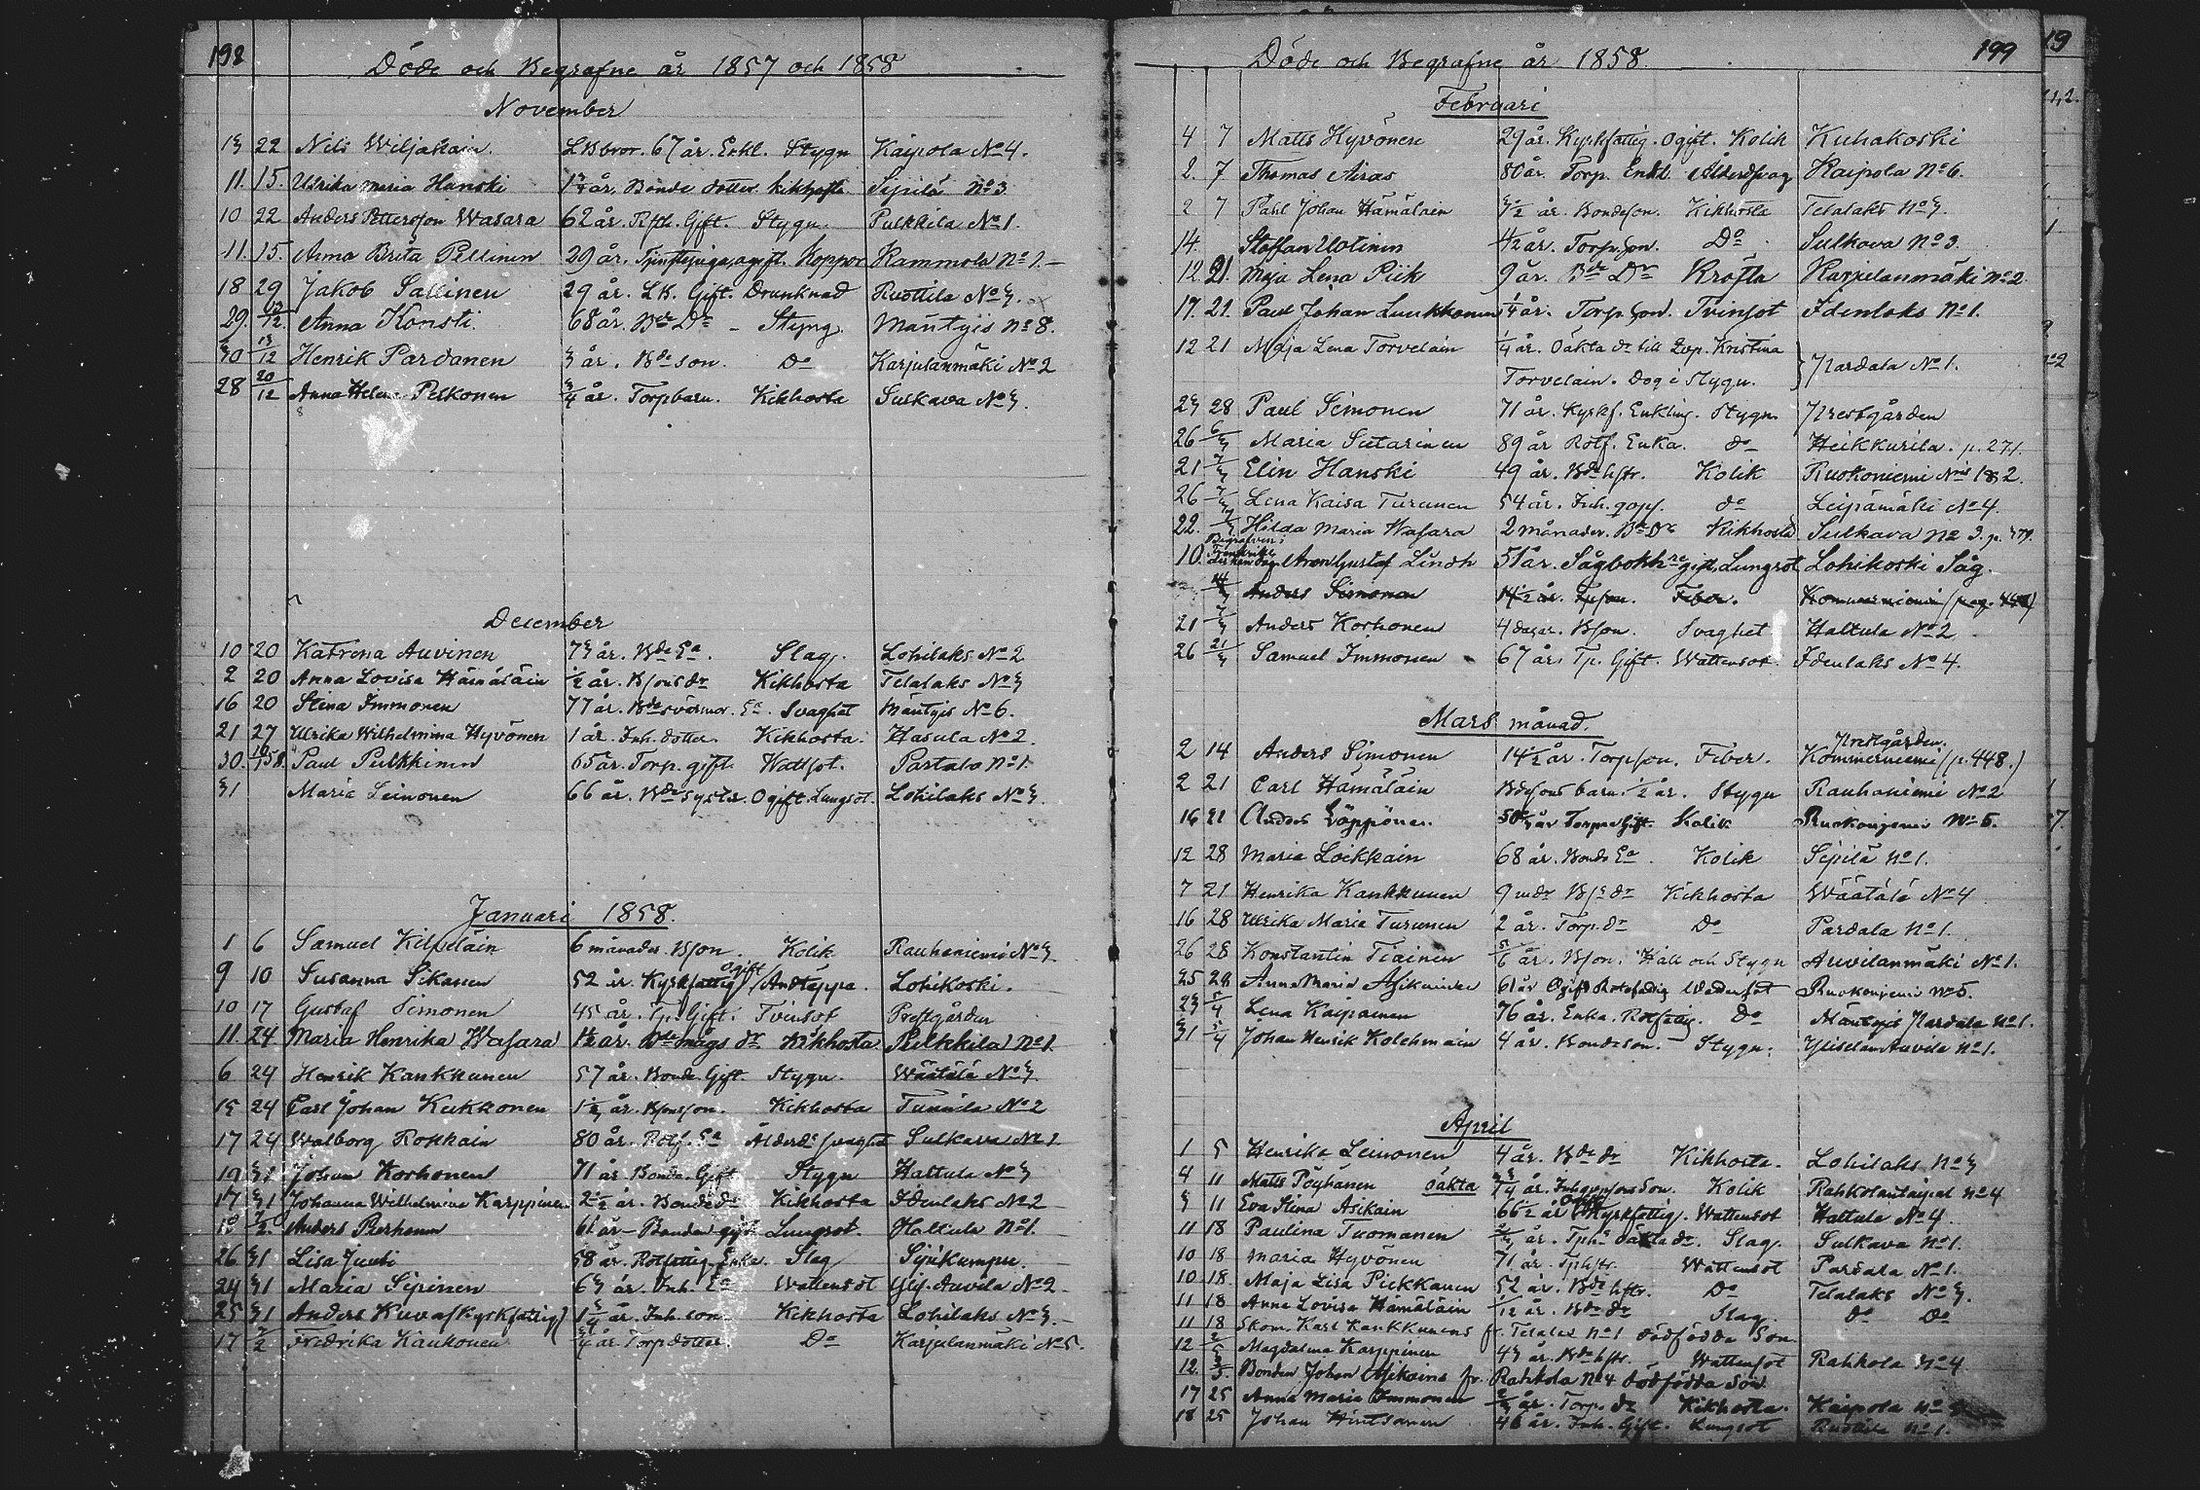 198
Döde och Begrafne år 1857 och 1858
November
13 22 Nils Wiljakain. 67 år. Enkl. Stygn Kaipola No 4.
11. 15. Ulrika Maria Hanski år. Bonde dotter. kikhosta Sipilä No 3
10 22 Anders Pettersson Wasara 62 år. Gift. Stygn. Pulkkila No 1.
11. 15. Anna Brita Pellinen 29 år. ogift. Koppor Kammola No 1.
18 29 Jakob Sallinen 29 år. L.K. Gift. Drunknad Ruottila No 3.
29. 13/12. Anna Konsti. 68 år. Bde Dr - Styng. Mäntyis No 8.
30 13/12 Henrik Pardanen 3 år. Bde son. Do Karjulanmäki No 2
28 20/12 Anna Helena Pelkonen 3/4 år. Torpbarn. Kikhosta Sulkava No 3.
December
10 20 Katrina Auvinen 73 år. Bde Ea. Slag. Lohilaks No 2
2 20 Anna Lovisa Hämäläin 1/2 år. Bsons dr Kikhosta Telalaks No 3
16 20 Stina Immonen 77 år. Bdesvärmor. Ea. Svaghet Mäntyis No 6.
21 27 Ulrika Wilhelmina Hyvönen 1 år. Inh. dotter. Kikhosta. Hasula No 2.
30. Paul Pulkkinen 65 år. Torp. gift. Wattsot. Partala No 1.
31 Maria Leinonen 66 år. Bde syster. Ogift. Lungsot. Lohilaks No 3.
Januari 1858.
1 6 Samuel Kilpeläin 6 månader. Bson. Kolik Rauhaniemi No 3
9 10 Susanna Sikanen 52 år. Kyrkfattig ogift Andtäppa. Lohikoski.
10 17 Gustaf Simonen 45 år. Tp. Gift. Tvinsot Prestgården
11 24 Maria Henrika Wasara 1 1/2 år. Bde mågs dr. Kikhosta. Pulkkila No 1.
6 24 Henrik Kankkunen 57 år. Bonde. Gift. Stygn. Wäätälä No 3.
13 24 Carl Johan Kukkonen år. Bsonson. Kikhosta Tunnila No 2
17 24 Walborg Roskain 80 år. Rotf. Ea Ålderds svaghet Sulkava No 1
19 31 Johan Korhonen 71 år. Bonde. Gift Stygn Hattula No 3
17 31 Johanna Wilhelmina Karppinen 2 1/2 år. Bonde dr Kikhosta Idenlaks No 2
18 7/2. Anders Parhonen 61 år - Bonden gift Lungsot. Halttula No 1.
26 31 Lisa Juuti 58 år. Rotfattig Enka. Slag
24 31 Maria Sipinen 63 år. Inh. Ea Wattensot Ylis. Auvila No 2
25 31 Anders Kuvas (kyrkfattig) 1 3/4 år. Inh. son Kikhosta Lohilaks No 3.
17 7/2 Fredrika Kaukonen 3/4 år. Torpdotter. Do Karjulanmäki No 5.
199
Döde och Begrafne år 1858.
Februari
4 7 Matts Hyvönen 29 år. Kyrkfattig. Ogift. Kolik Kuhakoski
2. 7. Thomas Airas 80 år. Torp. Enkl. Ålderdsvag Kaipola No 6.
2 7 Pahl Johan Hämäläin 3 1/2 år. Bondeson. Kikhosta Telalaks No 3.
14. Staffan Uotinen 4 1/2 år. Torp. Son. Do Sulkava No 3.
12 21. Maja Lena Piik 9 år. Bde Dr Kräfta Karjulanmäki No 2.
17. 21. Paul Johan Luukkonen 1/4 år. Torp. Son. Tvinsot Idenlaks No 1.
12 21 Maja Lena Torvelain 1/4 år. Oäkta dr till Kristina
Torvelain. Dog i Stygn. Pardala No 1.
23 28 Paul Simonen 71 år. Kyrkf. Enkling. Stygn Prestgården
26 6/3 Maria Sutarinen 89 år Rotf. Enka. do Heikkurila. p. 271.
21 7/3 Elin Hanski 49 år. Bde hstr. Kolik Ruokoniemi Nris 1 & 2.
26 7/3 Lena Kaisa Turunen 54 år. Inh. do Leipämäki No 4.
22. 7/3 Hilda Maria Wasara 2 månader. Bde Dr Kikhosta Sulkava No 3. p. 479.
10. Begrafven i Fredrikshamn dag Aron Gustaf Lindh 51 år. Sågbokhre gift, Lungsot Lohikoski Såg.
14/3 Anders Simonen 14 1/2 år. Tpson. Feber. Kommerniemi (pag. 448)
21 7/3 Anders Korhonen 4 dagar. Bson. Svaghet Haltula No 2
26 21/3 Samuel Immonen 67 år. Tp. Gift. Wattensot. Idenlaks No 4.
Mars månad.
2 14 Anders Simonen 14 1/2 år. Torpson. Feber. Prestgården. Kommerniemi (p. 448.)
2 21 Carl Hämäläin Bdesons barn. 1/2 år. Stygn Rauhaniemi No 2
16 21 Anders Löppönen. år Torpare Gift. Kolik Ruokoniemi No 5.
12 28 Maria Loikkain 68 år. Bonde Ea. Kolik Sipilä No 1.
7 21 Henrika Kankkunen 9 mdr Bss dr Kikhosta Wäätälä No 4
16 28 Ulrika Maria Turunen 2 år. Torp. dr Do Pardala No 1.
26 28 Konstantin Tiainen 5/6 år. Bson. Håll och Stygn Auvilanmäki No 1.
25 28 Anna Maria Asikainen 61 år Ogift Rotefattig Wattensot Ruokoniemi No 5.
23 5/4 Lena Kaipainen 76 år. Enka. Rotfattig. Do Mäntyis Pardala No 1.
31 5/4 Johan Henrik Kolehmain 4 år. Bondeson. Stygn. Ylisen Auvila No 1.
April
1 5 Henrika Leinonen 4 år. Bde dr Kikhosta. Lohilaks No 3
4 11 Matts Pöyhänen oäkta 3/4 år. Son. Kolik Rahkolantaipal No 4
3 11 Eva Stina Asikain 66 1/2 år Kyrkfattig. Wattensot Hattula No 4.
11 18 Paulina Tuomanen år. Tphs oäkta dr. Slag. Sulkava No 1.
10 18 Maria Hyvönen 71 år. Tphstr. Wattensot Pardala No 1.
10 18. Maja Lisa Pickkanen 52 år. Bde hstr. Do Telalaks No 3.
11 18 Anna Lovisa Hämäläin 1/12 år. Bde dr Slag. Do Do
11 18 Skom. Karl Kankkunens fr. Telalax No 1 dödfödda Son
12 2/5 Magdalena Karppinen 43 år. Bde hstr. Wattensot Rahkola No 4
12. 2/5. Bonden Johan Asikains fr. Rahkola No 4 dödfödda Son
17 25 Anna Maria Immonen år. Torp. dr Kikhosta. Kaipola No
18 25 Johan Hintsanen 46 år. Inh. Gift. Lungsot Ruottila No 1.
19